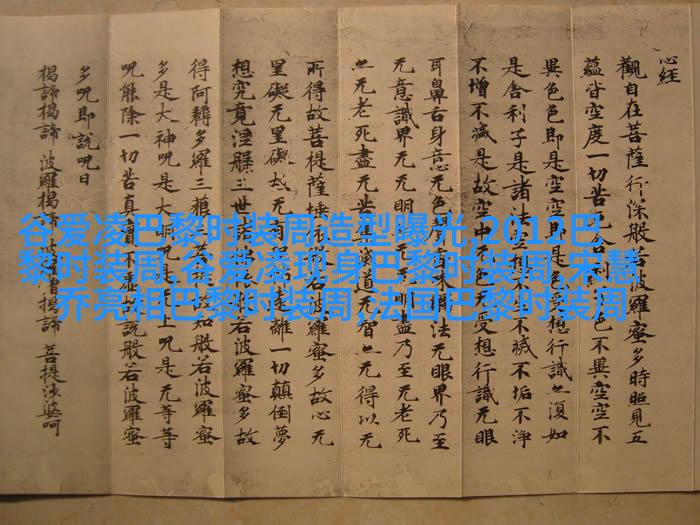 心经
觀自在菩薩行深般若波羅蜜多時照見五
蘊皆空度一切苦色不異空空不
異色色即是空空即是色受想行識亦復如
是舍利子是諸法空不不滅不垢不淨
不增不減是故空中无色无受想行識无眼
耳鼻舌身意无色法无眼界乃至
无意識界无无明明盡乃至无老死
亦无老死盡无苦集道无智亦无得以无
所得故菩提薩埵若波羅蜜多故心无
罣礙无罣礙故无遠離一切顛倒夢
想究竟涅槃三世般若波羅蜜多故
得阿耨多羅三藐故知般若波羅蜜
多是大神呪是大明呪是上呪是无等等
呪能除一切苦真實不虛故說般若波羅蜜
多呪即說呪曰
揭諦揭諦 波羅揭諦 僧揭諦 菩提莎婆呵
谷爱凌巴黎时装周造型曝光,2012巴
黎时装周,谷爱凌现身巴黎时装周,宋慧
乔亮相巴黎时装周,法国巴黎时装周